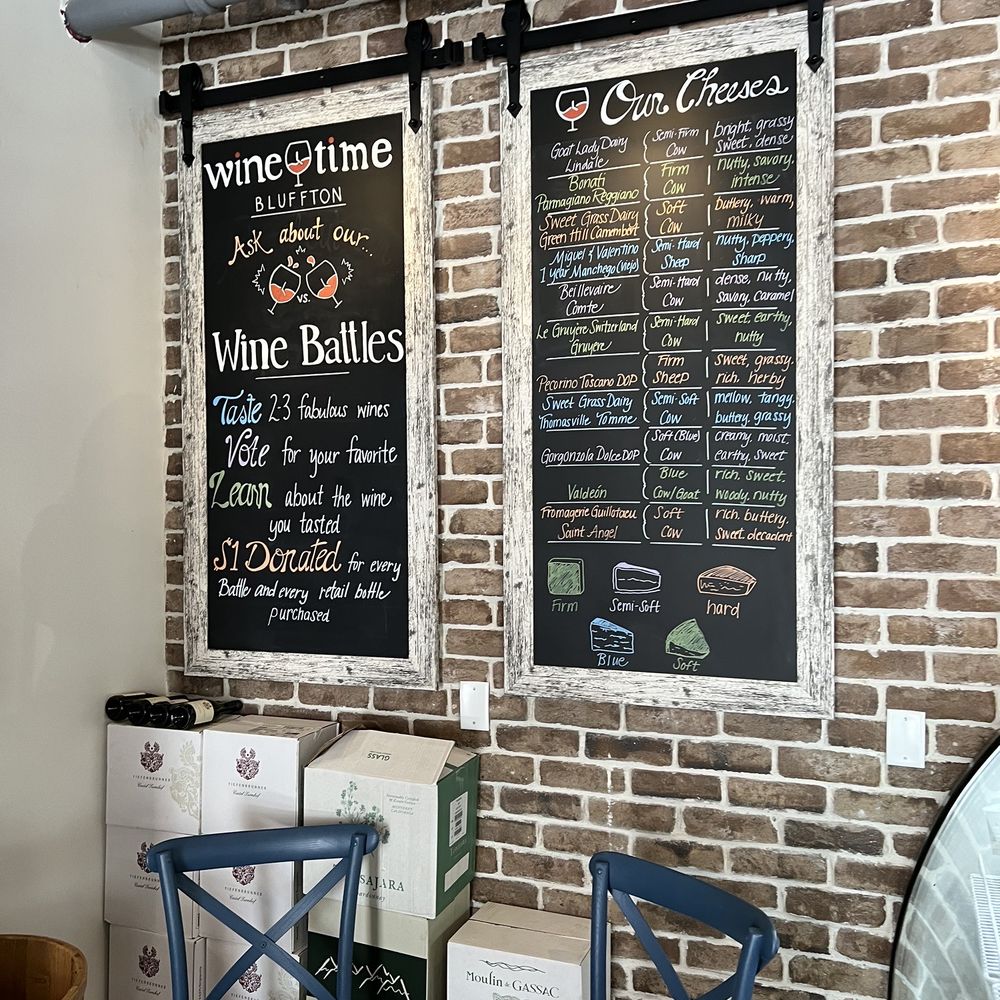 wine time
BLUFFTON
Ask about our...
vs.
Wine Battles
Taste 2-3 fabulous wines
Vote for your favorite
Learn about the wine
you tasted
$1 Donated for every
Battle and every retail bottle
purchased
Our Cheeses
Goat Lady Dairy Semi-Firm bright, grassy
Lindale Cow sweet, dense
Bonati Firm nutty, savory,
Parmagiano Reggiano Cow intense
Sweet Grass Dairy Soft buttery, warm,
Green Hill Camembert Cow milky
Miguel & Valentino Semi-Hard nutty, peppery,
1 year Manchego (Viejo) Sheep sharp
Beillevaire Semi-Hard dense, nutty,
Comte Cow Savory, Caramel
Le Gruyère Switzerland Semi-Hard sweet, earthy,
Gruyere Cow nutty
Firm sweet, grassy,
Pecorino Toscano DOP Sheep rich, herby
Sweet Grass Dairy Semi-Soft mellow, tangy,
Thomasville Tomme Cow buttery, grassy
Soft (Blue) creamy, moist,
Gorgonzola Dolce DOP Cow earthy, sweet
Blue rich, sweet,
Valdeón Cow/Goat woody, nutty
Fromagerie Guilloteau Soft rich, buttery,
Saint Angel Cow sweet, decadent
Firm Semi-Soft hard
Blue Soft
GLASS
TIEFENBRUNNER
Castel Turmhof
TIEFENBRUNNER
Castel Turmhof
TIEFENBRUNNER
Castel Turmhof
SAJARA
MOULIN de GASSAC